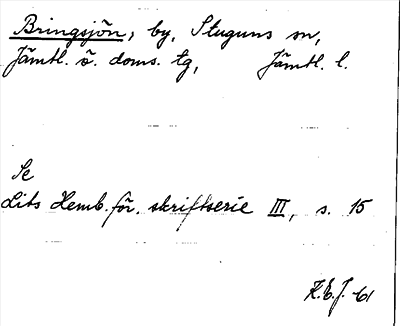 Bringsjön, by, Stuguns sn,
Jämtl. ö. doms. tg, Jämtl. l.
Se
Lits Hemb.för. skriftserie III, s. 15
K.E.J. -61